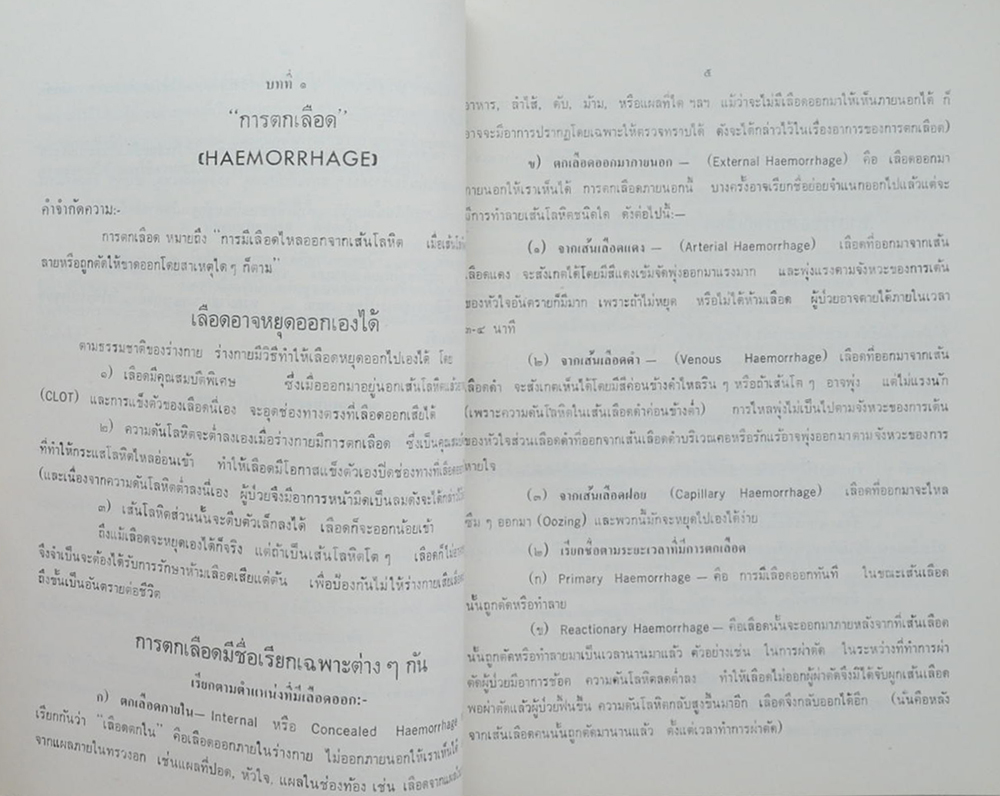 บทที่ ๑
“การตกเลือด”
(HAEMORRHAGE)
คำจำกัดความ:-
การตกเลือด หมายถึง “การมีเลือดไหลออกจากเส้นโลหิต เมื่อเส้น
ลายหรือถูกตัดให้ขาดออกโดยสาเหตุใด ๆ ก็ตาม”
เลือดอาจหยุดออกเองได้
ตามธรรมชาติของร่างกาย ร่างกายมีวิธีทำให้เลือดหยุดออกไปเองได้ โดย
๑) เลือดมีคุณสมบัติพิเศษ ซึ่งเมื่อออกมาอยู่นอกเส้นโลหิต
(CLOT) และการแข็งตัวของเลือดนี่เอง จะอุดช่องทางตรงที่เลือดออกเสียได้
๒) ความดันโลหิตจะต่ำลงเองเมื่อร่างกายมีการตกเลือด ซึ่งเป็น
ที่ทำให้กระแสโลหิตไหลอ่อนเข้า ทำให้เลือดมีโอกาสแข็งตัวเองปิดช่องทางที่เลือดออก
(และเนื่องจากความดันโลหิตต่ำลงนี่เอง ผู้ป่วยจึงมีอาการหน้ามืดเป็นลมดังจะได้
๓) เส้นโลหิตส่วนนั้นจะตีบตัวเล็กลงได้ เลือดก็จะออกน้อยเข้า
ถึงแม้เลือดจะหยุดเองได้ก็จริง แต่ถ้าเป็นเส้นโลหิตโต ๆ เลือดก็
จึงจำเป็นจะต้องได้รับการรักษาห้ามเลือดเสียแต่ต้น เพื่อป้องกันไม่ให้ร่างกายเสีย
ถึงขั้นเป็นอันตรายต่อชีวิต
การตกเลือดมีชื่อเรียกเฉพาะต่าง ๆ กัน
เรียกตามตำแหน่งที่มีเลือดออก:-
ก) ตกเลือดภายใน— Internal หรือ Concealed Haemorrhage
เรียกกันว่า “เลือดตกใน” คือเลือดออกภายในร่างกาย ไม่ออกภายนอกให้เราเห็นได้
จากแผลภายในทรวงอก เช่นแผลที่ปอด, หัวใจ, แผลในช่องท้อง เช่น เลือดจาก
๕
อาหาร, ลำไส้, ตับ, ม้าม, หรือแผลที่ไต ฯลฯ แม้ว่าจะไม่มีเลือดออกมาให้เห็นภายนอกได้ ก็
อาจจะมีอาการปรากฏโดยเฉพาะให้ตรวจทราบได้ ดังจะได้กล่าวไว้ในเรื่องอาการของการตกเลือด)
ข) ตกเลือดออกมาภายนอก — (External Haemorrhage) คือ เลือดออกมา
ภายนอกให้เราเห็นได้ การตกเลือดภายนอกนี้ บางครั้งอาจเรียกชื่อย่อยจำแนกออกไปแล้วแต่จะ
มีการทำลายเส้นโลหิตชนิดใด ดังต่อไปนี้:—
(๑) จากเส้นเลือดแดง — (Arterial Haemorrhage) เลือดที่ออกมาจากเส้น
เลือดแดง จะสังเกตได้โดยมีสีแดงเข้มจัดพุ่งออกมาแรงมาก และพุ่งแรงตามจังหวะของการเต้น
ของหัวใจอันตรายก็มีมาก เพราะถ้าไม่หยุด หรือไม่ได้ห้ามเลือด ผู้ป่วยอาจตายได้ภายในเวลา
๓-๕ นาที
(๒) จากเส้นเลือดดำ — (Venous Haemorrhage) เลือดที่ออกมาจากเส้น
เลือดดำ จะสังเกตเห็นได้โดยมีสีค่อนข้างดำไหลริน ๆ หรือถ้าเส้นโต ๆ อาจพุ่ง แต่ไม่แรงนัก
(เพราะความดันโลหิตในเส้นเลือดดำค่อนข้างต่ำ) การไหลพุ่งไม่เป็นไปตามจังหวะของการเต้น
ของหัวใจส่วนเลือดดำที่ออกจากเส้นเลือดดำบริเวณคอหรือรักแร้อาจพุ่งออกมาตามจังหวะของการ
หายใจ
(๓) จากเส้นเลือดฝอย (Capillary Haemorrhage) เลือดที่ออกมาจะไหล
ซึม ๆ ออกมา (Oozing) และพวกนี้มักจะหยุดไปเองได้ง่าย
(๒) เรียกชื่อตามระยะเวลาที่มีการตกเลือด
(ก) Primary Haemorrhage — คือ การมีเลือดออกทันที ในขณะเส้นเลือด
นั้นถูกตัดหรือทำลาย
(ข) Reactionary Haemorrhage — คือเลือดนั้นจะออกมาภายหลังจากที่เส้นเลือด
นั้นถูกตัดหรือทำลายมาเป็นเวลานานมาแล้ว ตัวอย่างเช่น ในการผ่าตัด ในระหว่างที่ทำการผ่า
ตัดผู้ป่วยมีอาการช๊อค ความดันโลหิตลดต่ำลง ทำให้เลือดไม่ออกผู้ผ่าตัดจึงมิได้จับผูกเส้นเลือด
พอผ่าตัดแล้วผู้ป่วยฟื้นขึ้น ความดันโลหิตกลับสูงขึ้นมาอีก เลือดจึงกลับออกได้อีก (นั่นคือหลัง
จากเส้นเลือดคนนั้นถูกตัดมานานแล้ว ตั้งแต่เวลาทำการผ่าตัด)